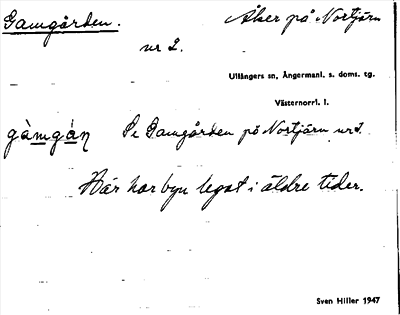 Gamgården. Åker på Nortjärn
nr 2.
Ullångers sn, Ångermanl. s. doms. tg.
Västernorrl. l.
gàmgàṇ Se Gamgården på Nortjärn nr 1.
Här har byn legat i äldre tider.
Sven Hiller 1947